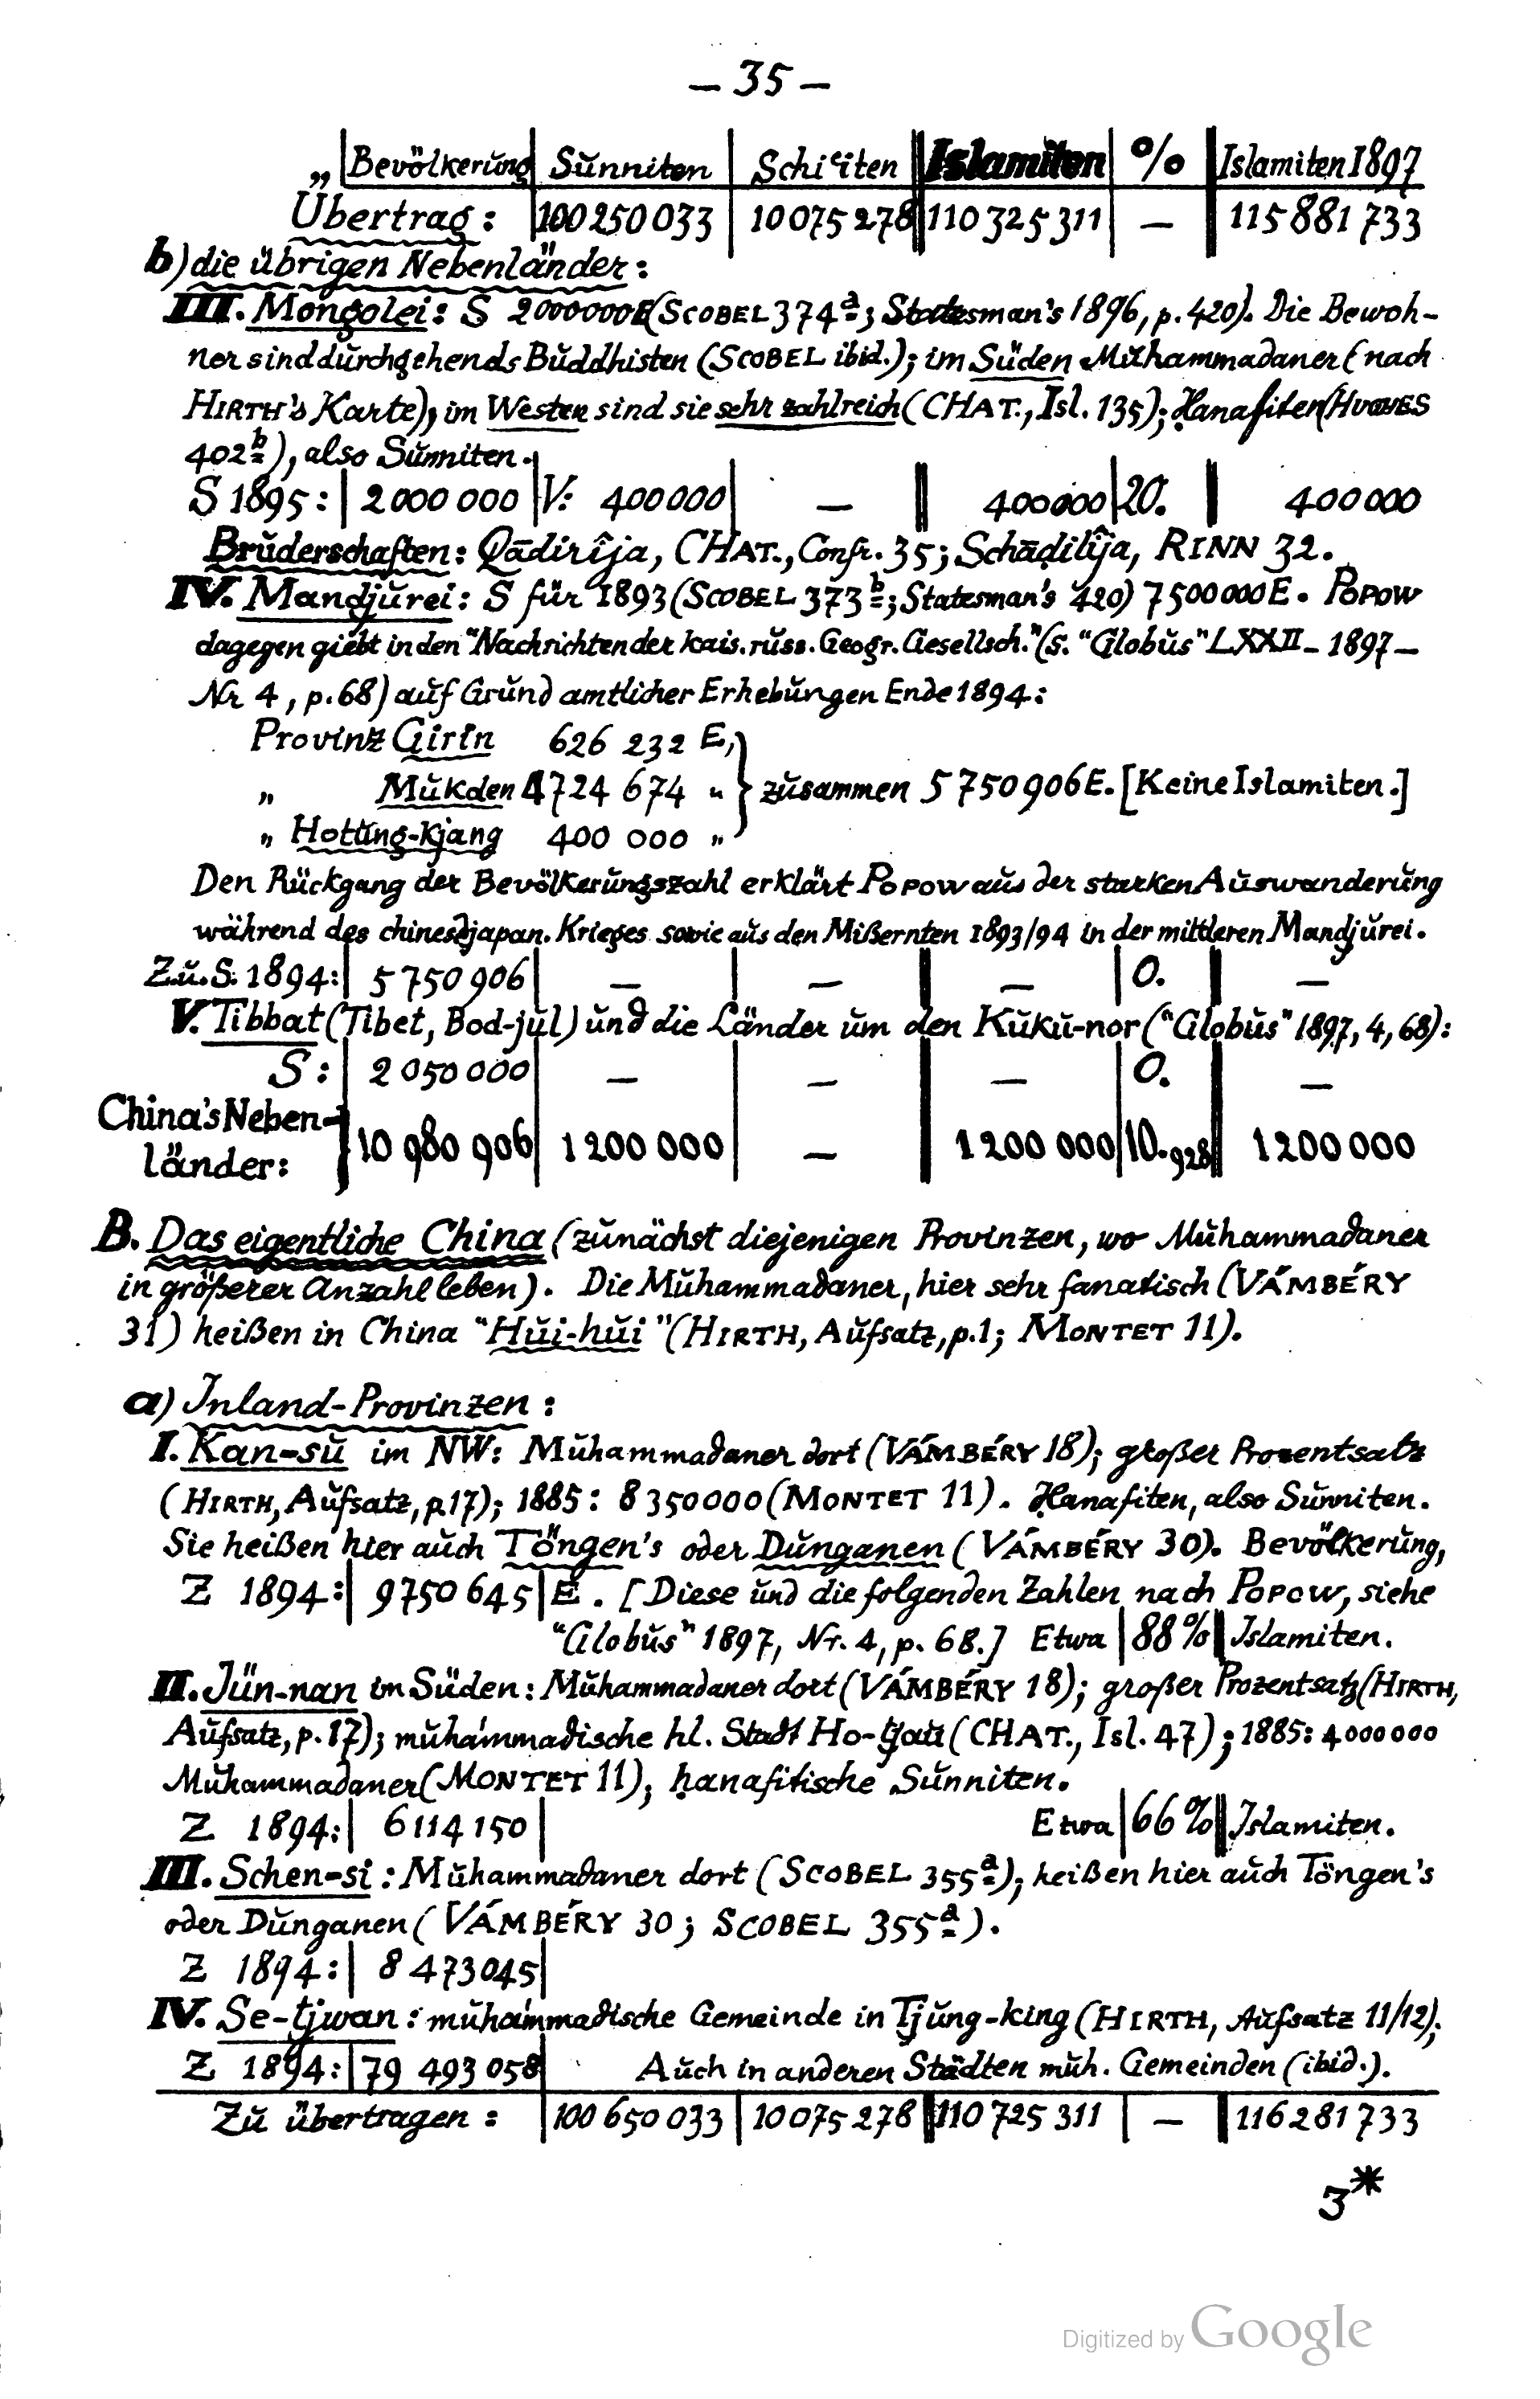 — 35 —
„ | Bevölkerung | Sunniten | Schiʿiten | Islamiten | % | Islamiten 1897
Übertrag: | 100 250 033 | 10 075 278 | 110 325 311 | — | 115 881 733
b) die übrigen Nebenländer:
III. Mongolei: S 2000000 E (SCOBEL 374a; Statesman's 1896, p. 420). Die Bewoh-
ner sind durchgehends Buddhisten (SCOBEL ibid.); im Süden Muhammadaner (nach
HIRTH's Karte); im Westen sind sie sehr zahlreich (CHAT., Isl. 135); Ḥanafiten (HUGHES
402b), also Sunniten.
S 1895: | 2 000 000 | V: 400 000 | — | 400 000 | 20. | 400 000
Bruderschaften: Qādirîja, CHAT., Confr. 35; Schāḏilîja, RINN 32.
IV. Mandjurei: S für 1893 (SCOBEL 373b; Statesman's 420) 7 500 000 E. POPOW
dagegen giebt in den "Nachrichten der kais. russ. Geogr. Gesellsch." (s. "Globus" LXXII – 1897 –
Nr 4, p. 68) auf Grund amtlicher Erhebungen Ende 1894:
Provinz Girin 626 232 E,
„ Mukden 4 724 674 „ } zusammen 5 750 906 E. [Keine Islamiten.]
„ Hotung-Kjang 400 000 „
Den Rückgang der Bevölkerungszahl erklärt POPOW aus der starken Auswanderung
während des chines. japan. Krieges sowie aus den Mißernten 1893/94 in der mittleren Mandjurei.
Z.u.S. 1894: | 5 750 906 | — | — | — | 0. | —
V. Tibbat (Tibet, Bod-jul) und die Länder um den Kuku-nor ("Globus" 1897, 4, 68):
S: | 2 050 000 | — | — | — | 0. | —
China's Neben-
länder: } 10 980 906 | 1 200 000 | — | 1 200 000 | 10.928 | 1 200 000
B. Das eigentliche China (zunächst diejenigen Provinzen, wo Muhammadaner
in größerer Anzahl leben). Die Muhammadaner, hier sehr fanatisch (VÁMBÉRY
31) heißen in China "Hui-hui" (HIRTH, Aufsatz, p. 1; MONTET 11).
a) Inland-Provinzen:
I. Kan-su im NW: Muhammadaner dort (VÁMBÉRY 18); großer Prozentsatz
(HIRTH, Aufsatz, p. 17); 1885: 8 350 000 (MONTET 11). Ḥanafiten, also Sunniten.
Sie heißen hier auch Töngen's oder Dunganen (VÁMBÉRY 30). Bevölkerung,
Z 1894: | 9 750 645 | E. [Diese und die folgenden Zahlen nach POPOW, siehe
"Globus" 1897, Nr. 4, p. 68.] Etwa | 88% | Islamiten.
II. Jün-nan im Süden: Muhammadaner dort (VÁMBÉRY 18); großer Prozentsatz (HIRTH,
Aufsatz, p. 17); muhammadische hl. Stadt Ho-tjau (CHAT., Isl. 47); 1885: 4 000 000
Muhammadaner (MONTET 11), ḥanafitische Sunniten.
Z 1894: | 6 114 150 | Etwa | 66% | Islamiten.
III. Schen-si: Muhammadaner dort (SCOBEL 355a); heißen hier auch Töngen's
oder Dunganen (VÁMBÉRY 30; SCOBEL 355a).
Z 1894: | 8 473 045 |
IV. Se-tjwan: muhammadische Gemeinde in Tjung-king (HIRTH, Aufsatz 11/12);
Z 1894: | 79 493 058 | Auch in anderen Städten muh. Gemeinden (ibid.).
Zu übertragen: | 100 650 033 | 10 075 278 | 110 725 311 | — | 116 281 733
3*
Digitized by Google